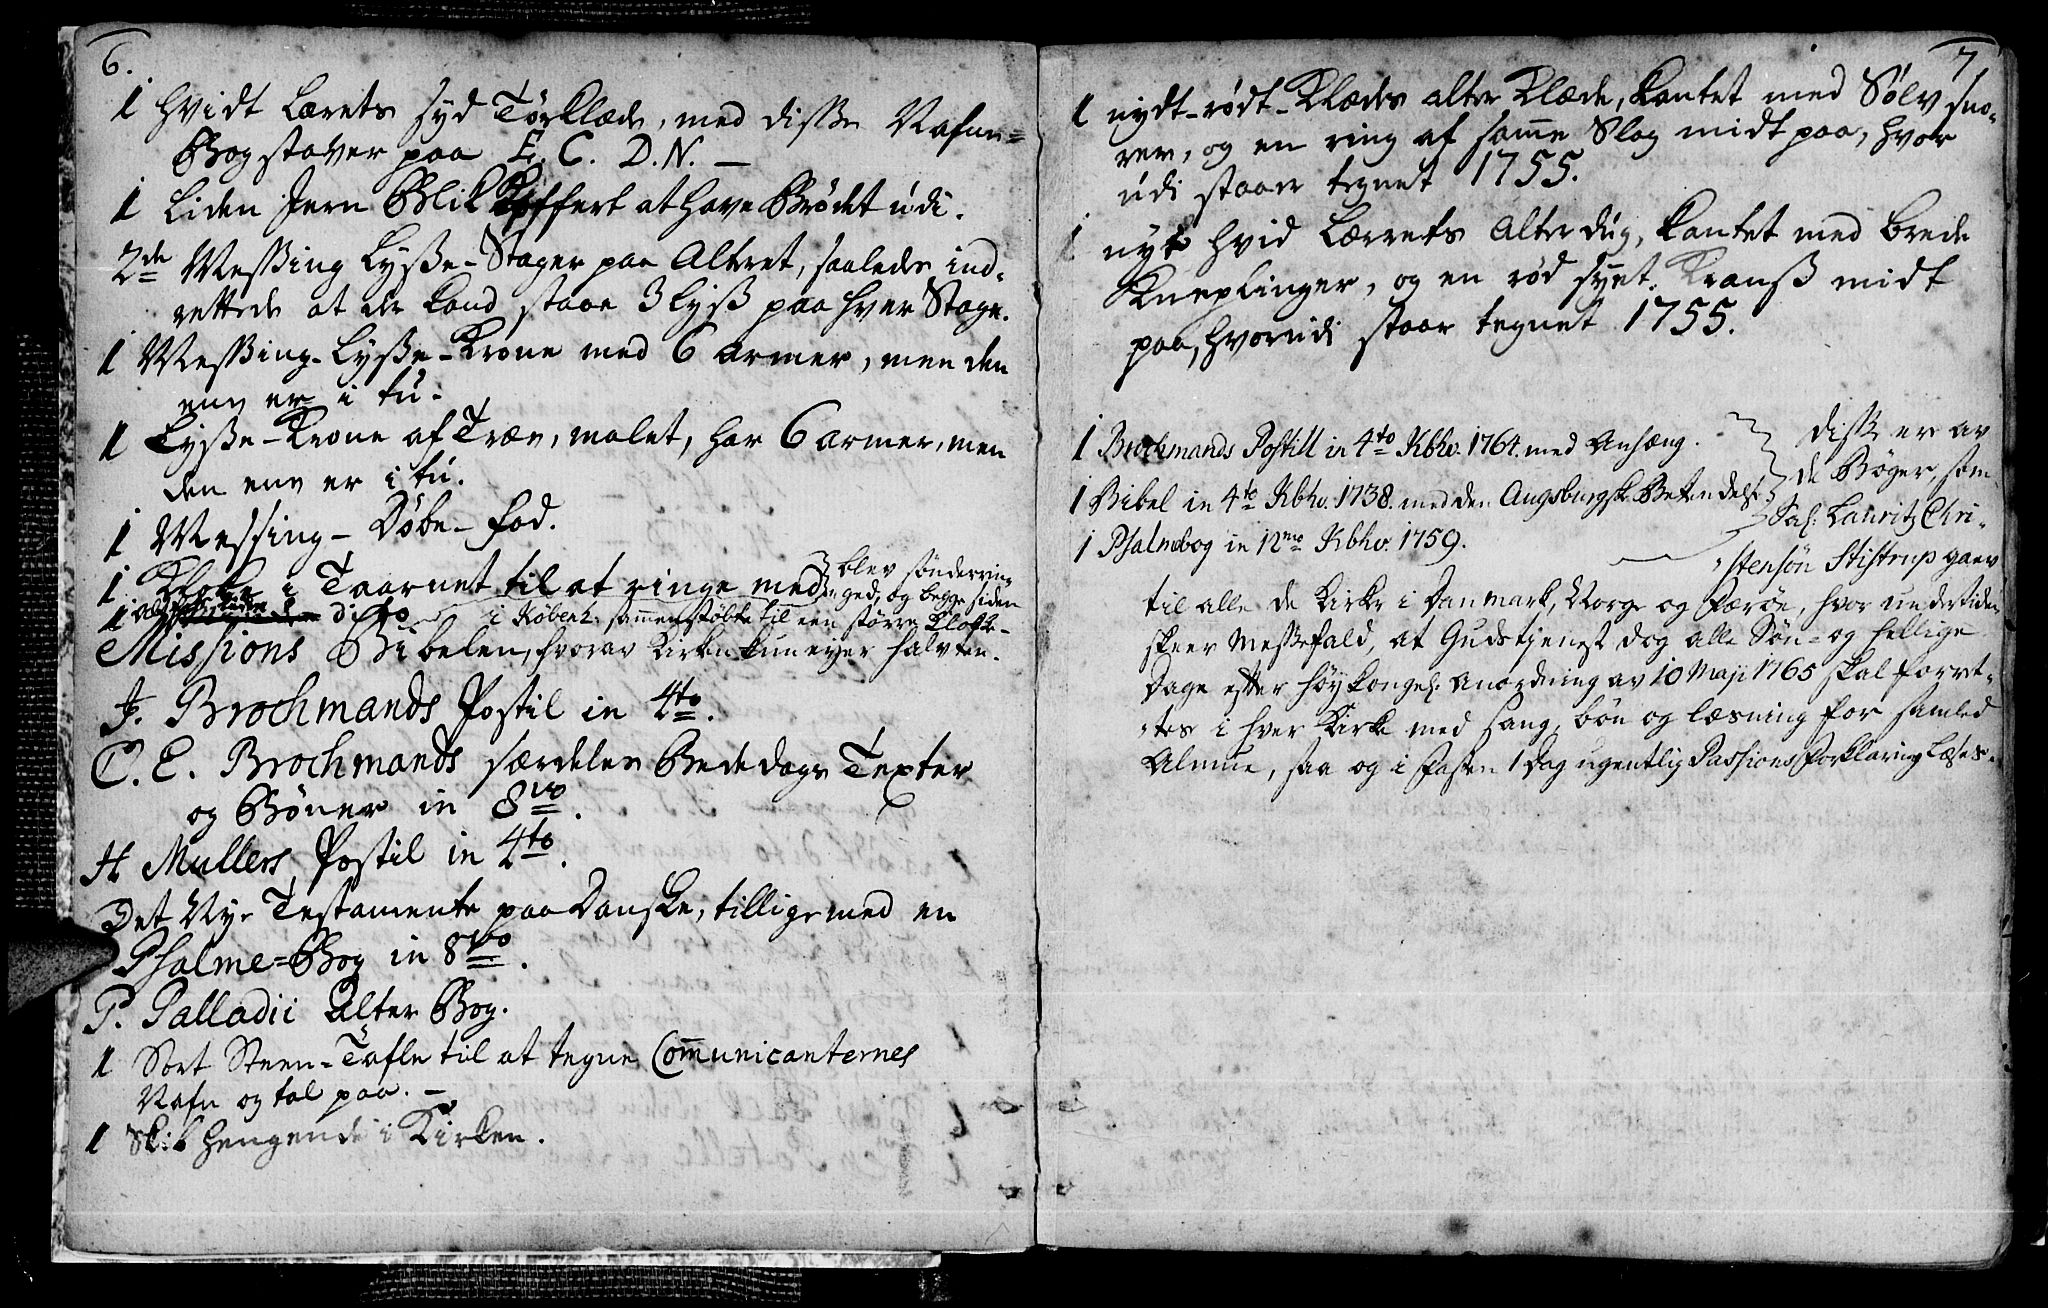 6.
1 hvidt Lærets syd Tørklæde, med disse Nafne=
Bogstaver paa E. C. D. N. —
1 liden Jern Blik Koffert at have Brødet udi.
2de Messing Lysse-Stager paa Alteret, saaledes ind-
rettede at der kand staae 3 lyss paa hver Stage.
1 Messing-Lysse-Krone med 6 armer, men den
eene er i tu.
1 Lysse-Krone af Træe, malet, har 6 armer, men
den ene er i tu.
1 Messing-Døbe-Fad.
1. Klokke i Taarnet til at ringe med
1 liden dito
blev sønderrin-
ged, og begge siden
i Københ: sammenstøbte til een større Klokke-
Missions Bibelen, hvorav Kirken kun eyer halvten.
J. Brochmands Postil in 4to.
C. E. Brochmands særdeles Bededags Texter
og Bøner in 8vo.
H Mullers Postil in 4to.
Det Nye Testamente paa Danske, tillige med en
Psalme=Bog in 8vo.
P. Palladii Alter Bog.
1 Sort Steen-Tafle til at tegne Com̄unicanternes
Nafn og tal paa. —
1 Skib hengende i Kirken.
7
1 nydt-rødt-Klædes alter Klæde, kantet med Sølv sno-
rer, og en ring af sam̄e Slag midt paa, hvor
udi staaer tegnet 1755.
1 nyt hvid Lærrets Alterdug, kantet med brede
Kneplinger, og en rød syet Kranss midt
paa, hvorudi staar tegnet 1755.
1 Brochmands Postill in 4to Kbhv. 1764. med Anhæng.
1 Bibel in 4to Kbhv. 1738. med den Augsburgske Bekendelse
1 Psalmebog in 12mo Kbhv. 1759.
disse er av
de Bøger, som
Sal: Lauritz Chri-
stensøn Stistrup gaev
til alle de Kirker i Danmark, Norge og Færøe, hvor undertiden
skeer Messefald, at Gudstjenest dog alle Søn- og hellige
Dage efter høykongel: Anordning av 10 Maji 1765 skal forret-
tes i hver Kirke med sang, bøn og læsning for samled
Almue, saa og i Fasten 1 Dag ugentlig Passions Forklaring læses.